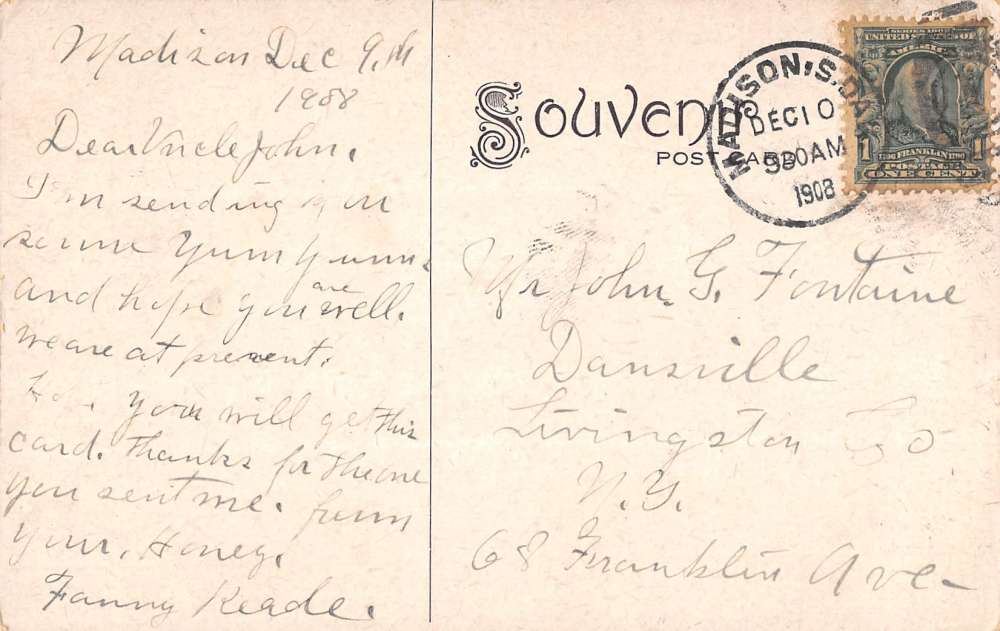 Madison Dec 9.th
1908
Dear Uncle John.
I'm sending you
some Yum Yum.
and hope you are well.
we are at present.
you will get this
card. Thanks for the one
you sent me. from
your. Honey.
Fanny Reade.
Souvenir
POST CARD
MADISON, S. DAK
DEC 10
930 AM
1908
SERIES 1902
UNITED STATES OF
AMERICA
1 1790 FRANKLIN 1790 1
POSTAGE
ONE CENT
Mr John G. Fontaine
Dansville
Livingston Co
N. Y.
68 Franklin Ave-